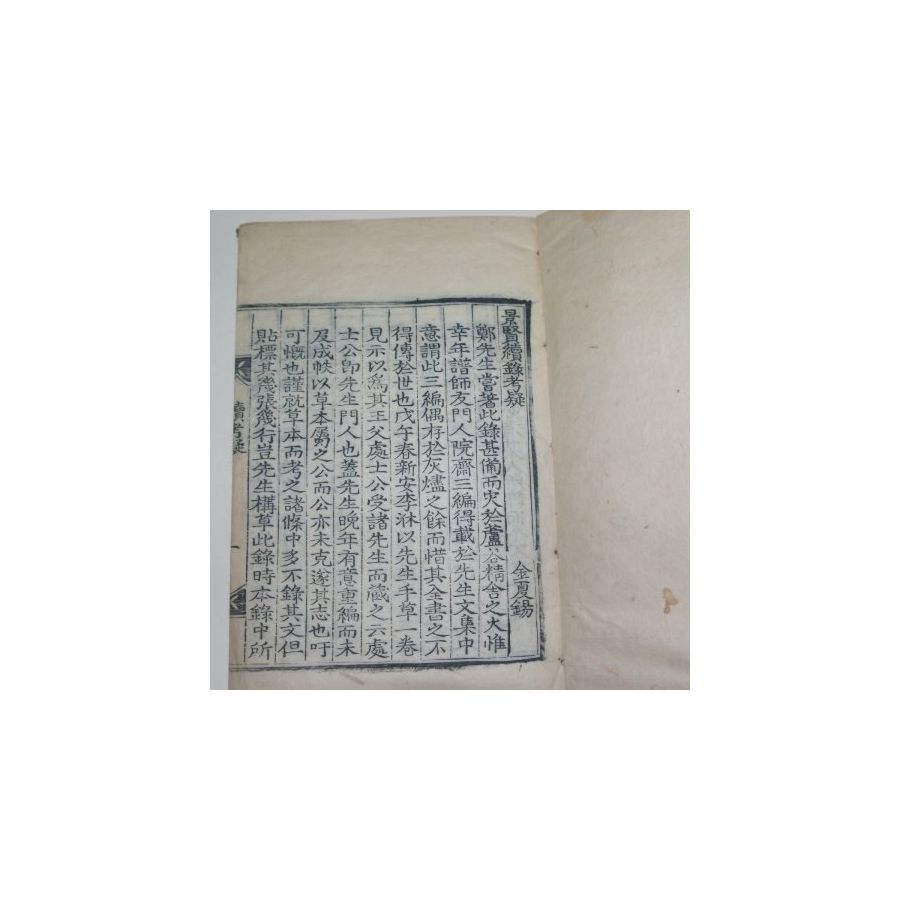 景賢續錄考疑
金夏鍚
鄭先生嘗著此錄甚備而灾於蘆谷精舍之火惟
幸年譜師友門人院齋三編得載於先生文集中
意謂此三編偶存於灰燼之餘而惜其全書之不
得傳於世也戊午春新安李湫以先生手草一卷
見示以爲其王父處士公受諸先生而藏之云處
士公卽先生門人也蓋先生晚年有意重編而未
及成帙以草本屬之公而公亦未克遂其志也吁
可慨也謹就草本而考之諸條中多不錄其文但
貼標其幾張幾行豈先生搆草此錄時本錄中所
續考疑